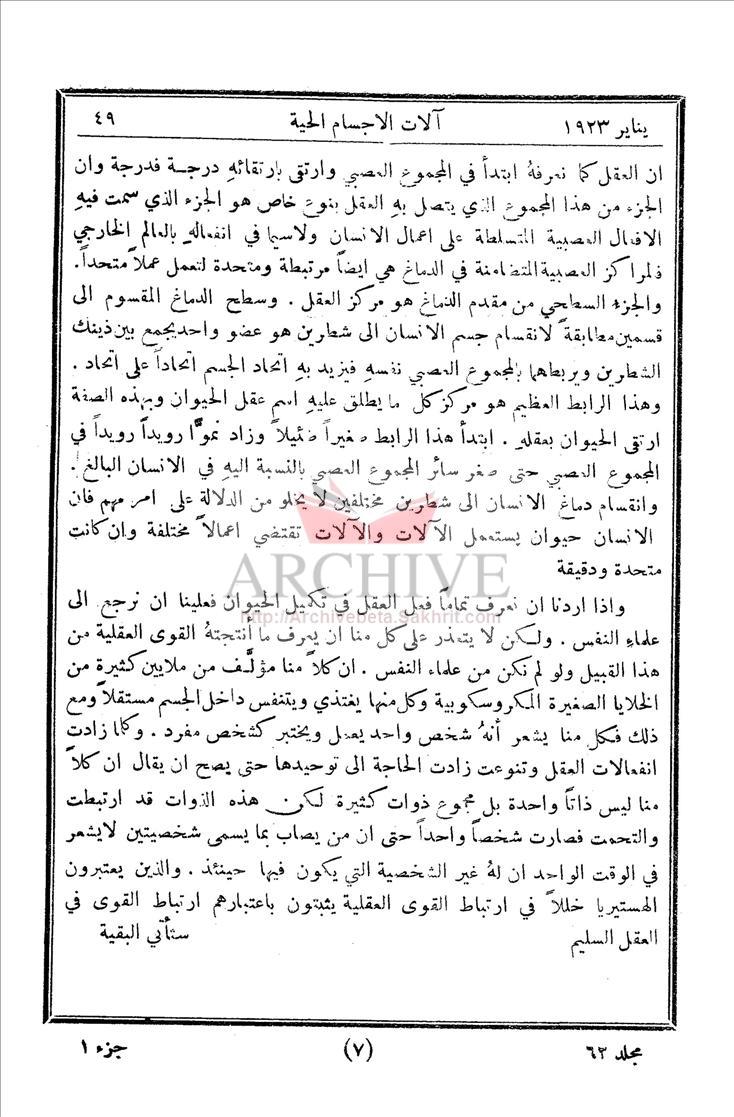 يناير ١٩٢٣ آلات الاجسام الحية ٤٩
ان العقل كما نعرفهُ ابتدأ في المجموع العصبي وارتقى بارتقائهِ درجة فدرجة وان
الجزء من هذا المجموع الذي يتصل بهِ العقل بنوع خاص هو الجزء الذي سمت فيهِ
الافعال العصبية المتسلطة على اعمال الانسان ولاسيما في انفعالهِ بالعالم الخارجي
فالمراكز العصبية المتضامنة في الدماغ هي ايضاً مرتبطة ومتحدة لتعمل عملاً متحداً.
والجزء السطحي من مقدم الدماغ هو مركز العقل . وسطح الدماغ المقسوم الى
قسمين مطابقةً لانقسام جسم الانسان الى شطرين هو عضو واحد يجمع بين ذينك
الشطرين ويربطهما بالمجموع العصبي نفسهِ فيزيد بهِ اتحاد الجسم اتحاداً على اتحاد .
وهذا الرابط العظيم هو مركز كل ما يطلق عليهِ اسم عقل الحيوان وبهذه الصفة
ارتقى الحيوان بعقلهِ . ابتدأ هذا الرابط صغيراً ضئيلاً وزاد نموًّا رويداً رويداً في
المجموع العصبي حتى صغر سائر المجموع العصبي بالنسبة اليهِ في الانسان البالغ .
وانقسام دماغ الانسان الى شطرين مختلفين لا يخلو من الدلالة على امر مهم فان
الانسان حيوان يستعمل الآلات والآلات تقتضي اعمالاً مختلفة وان كانت
متحدة ودقيقة
واذا اردنا ان نعرف تماماً فعل العقل في تكميل الحيوان فعلينا ان نرجع الى
علماء النفس . ولكن لا يتعذر على كل منا ان يعرف ما أنتجتهُ القوى العقلية من
هذا القبيل ولو لم نكن من علماء النفس . ان كلاً منا مؤلَّف من ملايين كثيرة من
الخلايا الصغيرة المكروسكوبية وكل منها يغتذي ويتنفس داخل الجسم مستقلاً ومع
ذلك فكل منا يشعر أنهُ شخص واحد يعمل ويختبر كشخص مفرد . وكلما زادت
انفعالات العقل وتنوعت زادت الحاجة الى توحيدها حتى يصح ان يقال ان كلاً
منا ليس ذاتاً واحدة بل مجموع ذوات كثيرة لكن هذه الذوات قد ارتبطت
والتحمت فصارت شخصاً واحداً حتى ان من يصاب بما يسمى شخصيتين لا يشعر
في الوقت الواحد ان لهُ غير الشخصية التي يكون فيها حينئذ . والذين يعتبرون
الهستيريا خللاً في ارتباط القوى العقلية يثبتون باعتبارهم ارتباط القوى في
العقل السليم ستأتي البقية
مجلد ٦٢ (٧) جزء ١
ARCHIVE
http://Archivebeta.Sakhrit.com